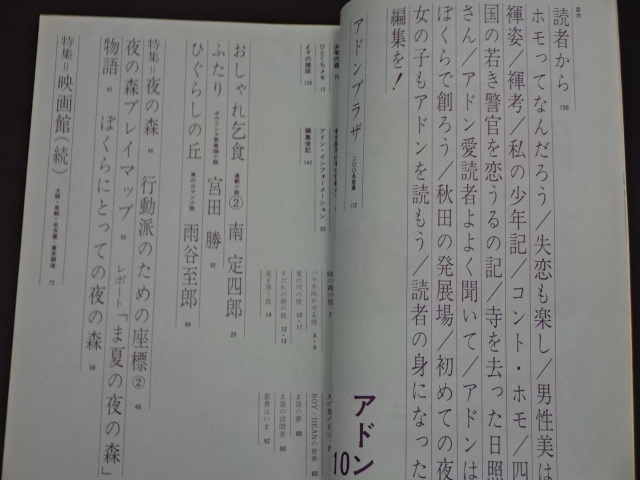 目次
読者から 130
ホモってなんだろう／失恋も楽し／男性美は
褌姿／褌考／私の少年記／コント・ホモ／四
国の若き警官を恋うるの記／寺を去った日照
さん／アドン愛読者よよく聞いて／アドンは
ぼくらで創ろう／秋田の発展場／初めての夜
女の子もアドンを読もう／読者の身になった
編集を！
アドンプラザ 二〇〇名登場 112
アドン
10
少年の森
ひとくちメモ
よすの雑談
アドン・インフォーメーション
編集後記
緑の森の彼 7
バラを咲かせる彼 8・9
夏の川の彼 10・11
すだれの前の彼 12・13
電を洗う彼 14
BOY・DEANの世界
ま昼の夢
ま昼の訪問者
若者はいま
おしゃれ乞食 連載小説② 南 定四郎
ふたり 宮田 勝
ひぐらしの丘 雨谷至郎
特集＝夜の森 行動派のための座標②
夜の森プレイマップ レポート「ま夏の夜の森」
物語 ぼくらにとっての夜の森
特集＝映画館（続） 72